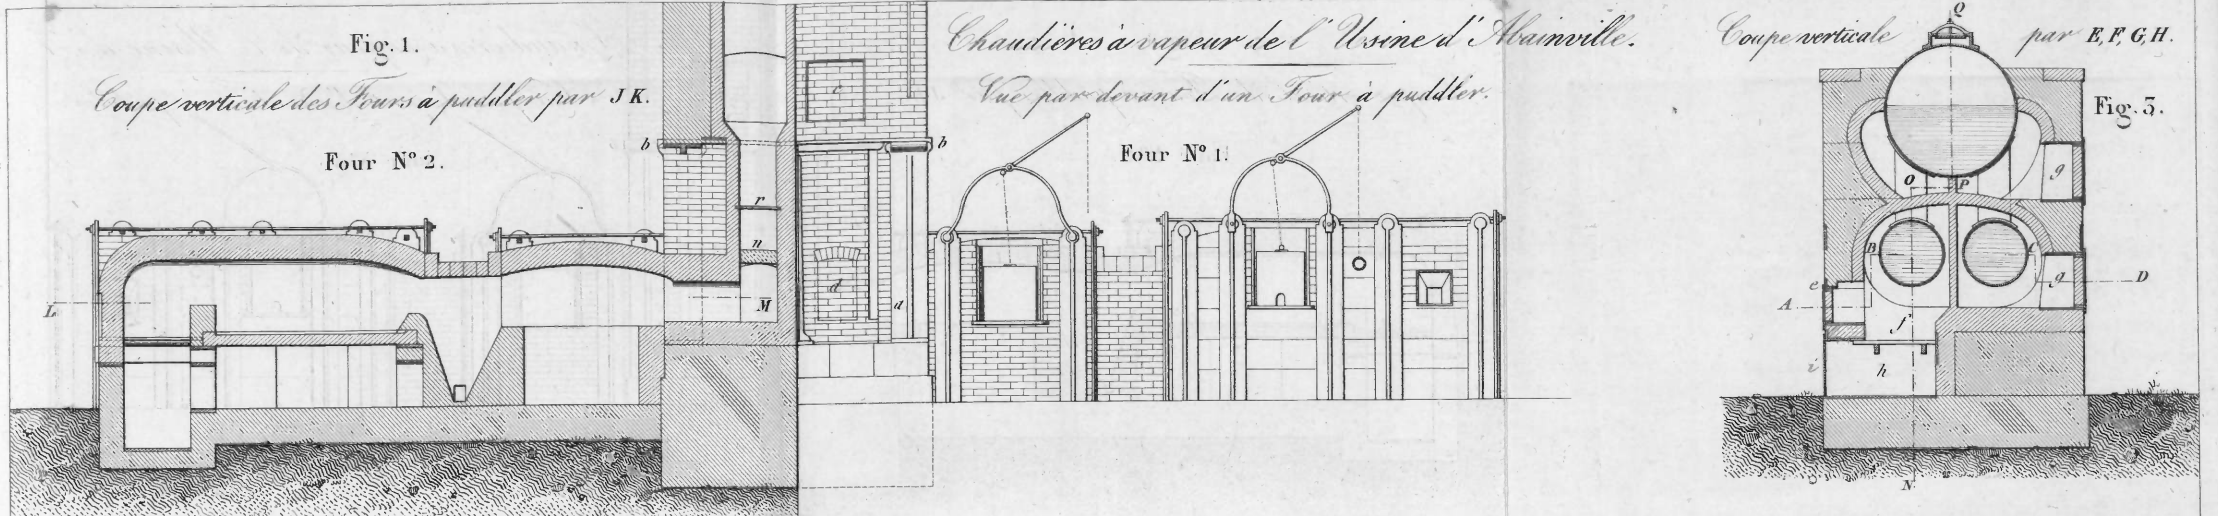 Fig. 1.
Coupe verticale des Fours à puddler par J K.
Four N° 2.
Chaudières à vapeur de l'Usine d'Abainville.
Vue par devant d'un Four à puddler.
Four N° 1.
Coupe verticale par E, F, G, H.
Fig. 3.
b
c
b
r
n
M
L
d
d
Q
O
P
g
B
C
g
D
e
A
f
i
h
N